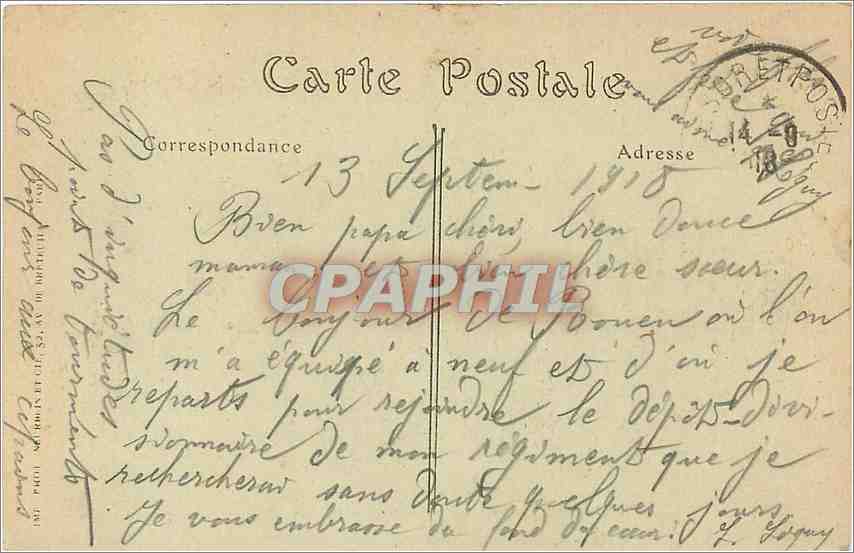 Carte Postale
Correspondance
Adresse
13 Septem- 1918
Bien papa chéri, bien douce
maman et bien chère sœur.
Le bonjour de Rouen où l'on
m'a équipé à neuf et d'où je
reparts pour rejoindre le dépôt-divi-
sionnaire de mon régiment que je
rechercherai sans doute quelques jours.
Je vous embrasse du fond du cœur.
Pas d'inquiétudes
point de tourments
Le bonjour aux
14 -9
18
CPAPHIL